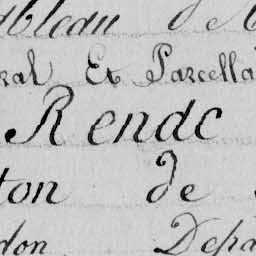 bleau de
ral Et Parcella
Rende
ton de
don Depa